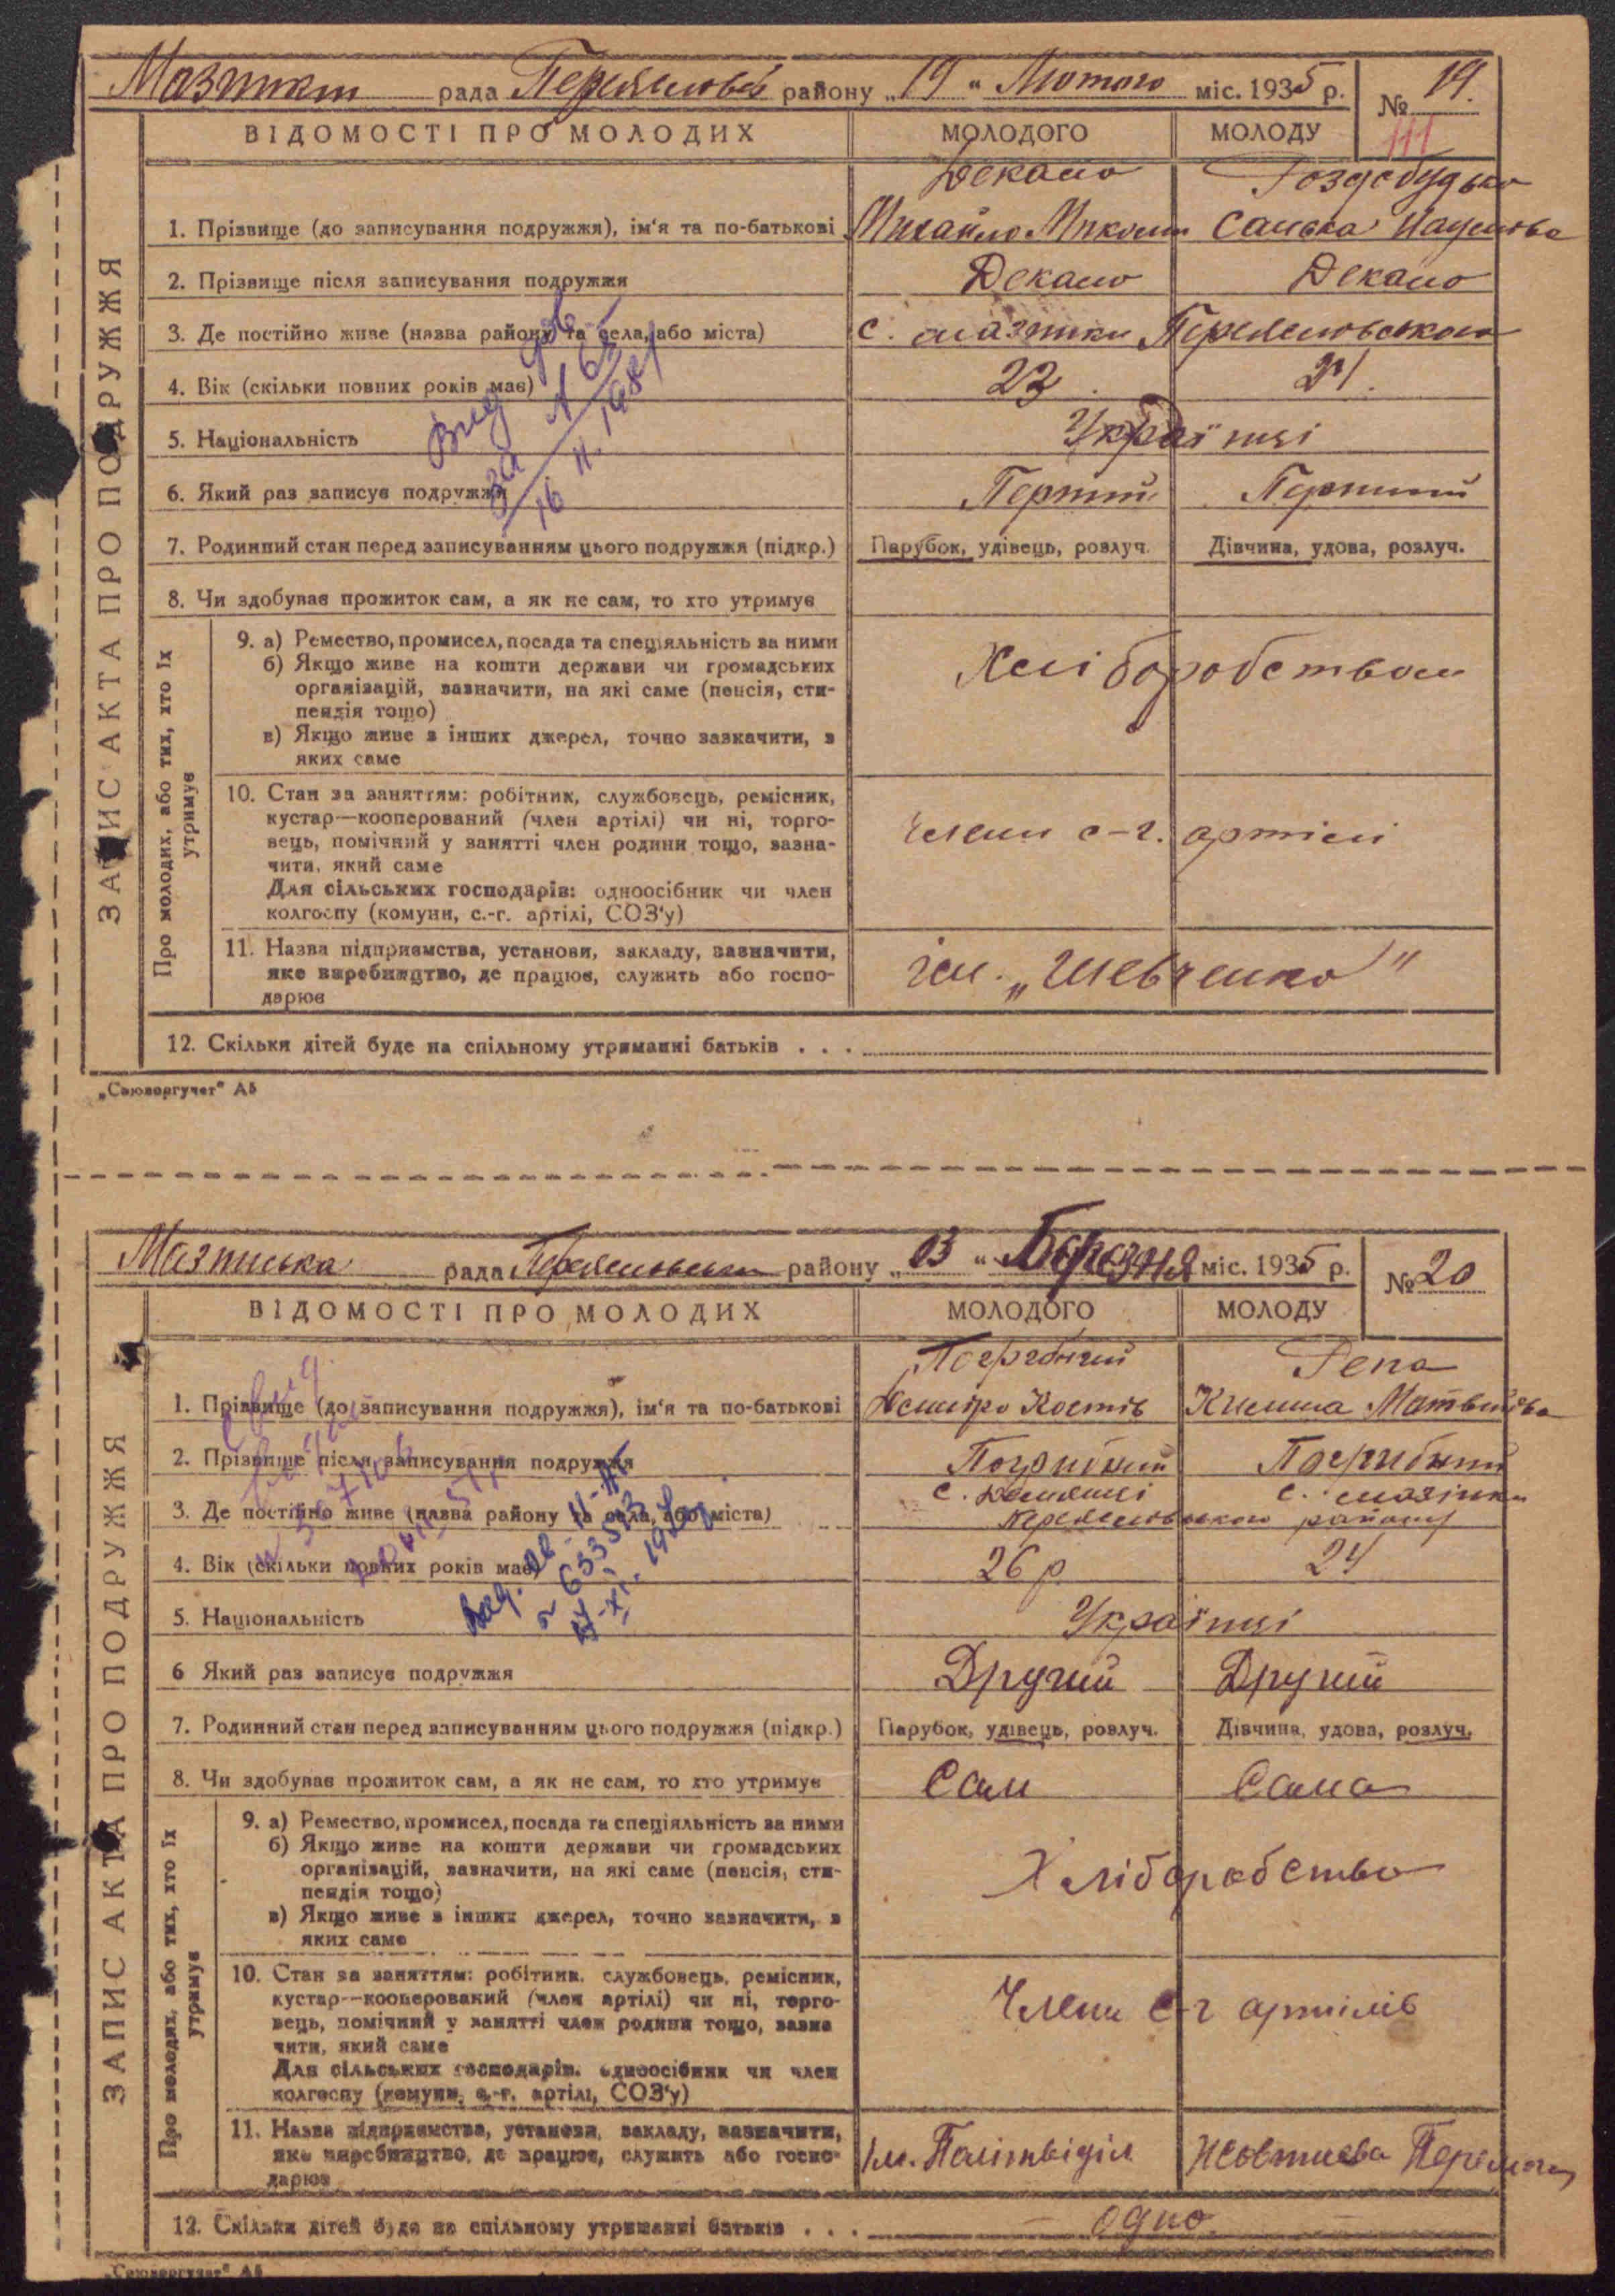 рада району „19“ Лютого міс. 1935 р. № 19.
111
ЗАПИС АКТА ПРО ПОДРУЖЖЯ
ВІДОМОСТІ ПРО МОЛОДИХ МОЛОДОГО МОЛОДУ
1. Прізвище (до записування подружжя), ім‘я та по-батькові Михайло
2. Прізвище після записування подружжя
3. Де постійно живе (назва району та села, або міста) с.
4. Вік (скільки повних років має) 22 21.
5. Національність Українці
6. Який раз записує подружжя Перший Перший
7. Родинний стан перед записуванням цього подружжя (підкр.) Парубок, удівець, розлуч. Дівчина, удова, розлуч.
8. Чи здобував прожиток сам, а як не сам, то хто утримує
Про молодих, або тих, хто їх утримує
9. а) Ремество, промисел, посада та спеціяльність за ними
б) Якщо живе на кошти держави чи громадських
організацій, зазначити, на які саме (пенсія, сти-
пендія тощо)
в) Якщо живе з інших джерел, точно зазначити, з
яких саме
Хліборобством
10. Стан за заняттям: робітник, службовець, ремісник,
кустар—кооперований (член артілі) чи ні, торго-
вець, помічний у занятті член родини тощо, зазна-
чити, який саме
Для сільських господарів: одноосібник чи член
колгоспу (комуни, с.-г. артілі, СОЗ‘у)
члени с-г. артілі
11. Назва підприємства, установи, закладу, зазначити,
яке виробництво, де працює, служить або госпо-
дарює
ім. „Шевченко“
12. Скільки дітей буде на спільному утриманні батьків . . .
„Союзоргучет“ А5
рада району „03“ Березня міс. 1935 р. № 20
ЗАПИС АКТА ПРО ПОДРУЖЖЯ
ВІДОМОСТІ ПРО МОЛОДИХ МОЛОДОГО МОЛОДУ
Погрібний Репа
1. Прізвище (до записування подружжя), ім‘я та по-батькові
2. Прізвище після записування подружжя Погрибний Погрибний
3. Де постійно живе (назва району та села, або міста) с. с.
району
4. Вік (скільки повних років має) 26 р 24
5. Національність Українці
6 Який раз записує подружжя Другий Другий
7. Родинний стан перед записуванням цього подружжя (підкр.) Парубок, удівець, розлуч. Дівчина, удова, розлуч.
8. Чи здобував прожиток сам, а як не сам, то хто утримує Сам Сама
Про молодих, або тих, хто їх утримує
9. а) Ремество, промисел, посада та спеціяльність за ними
б) Якщо живе на кошти держави чи громадських
організацій, зазначити, на які саме (пенсія, сти-
пендія тощо)
в) Якщо живе з інших джерел, точно зазначити, з
яких саме
Хліборобство
10. Стан за заняттям: робітник, службовець, ремісник,
кустар—кооперований (член артілі) чи ні, торго-
вець, помічний у занятті член родини тощо, зазна
чити, який саме
Для сільських господарів: одноосібник чи член
колгоспу (комуни, с.-г. артілі, СОЗ‘у)
Члени с-г артілів
11. Назва підприємства, установи, закладу, зазначити,
яке виробництво, де працює, служить або госпо-
дарює
Ім. Політвідділ Жовтнева Перемога
12. Скільки дітей буде на спільному утриманні батьків . . . одно.
„Союзоргучет“ А5